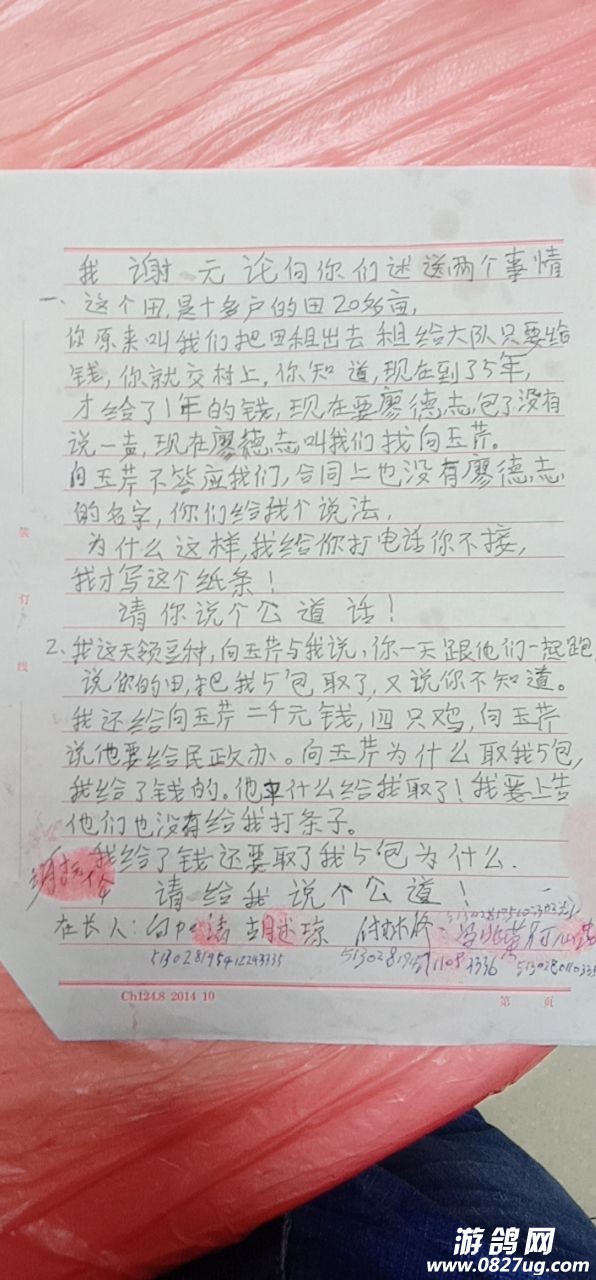 我 谢 元 论向你们述 送两个事情
一、这个田,是十多户的田20多亩,
你原来叫我们把田租出去 租给大队只要给
钱,你就交村上,你知道,现在到了5年,
才给了1年的钱,现在要廖德志,包了没有
说一直,现在廖德志叫我们找向玉芹。
向玉芹不答应我们,合同上也没有廖德志
的名字,你们给我个说法,
为什么这样,我给你打电话你不接,
我才写这个纸条!
请你说个公道话!
2、我这天领豆种,向玉芹与我说,你一天跟他们一起跑,
说你的田,把我5'包取了,又说你不知道。
我还给向玉芹二千元钱,四只鸡,向玉芹
说他要给民政办。向玉芹为什么取我5包,
我给了钱的。他 什么给我取了!我要上告
他们也没有给我打条子。
我给了钱还要取了我5包为什么.
请给我说个公道!
在长人:
Ch124.8 2014 10
第 页
装
订
线
游鸽网
www.0827ug.com